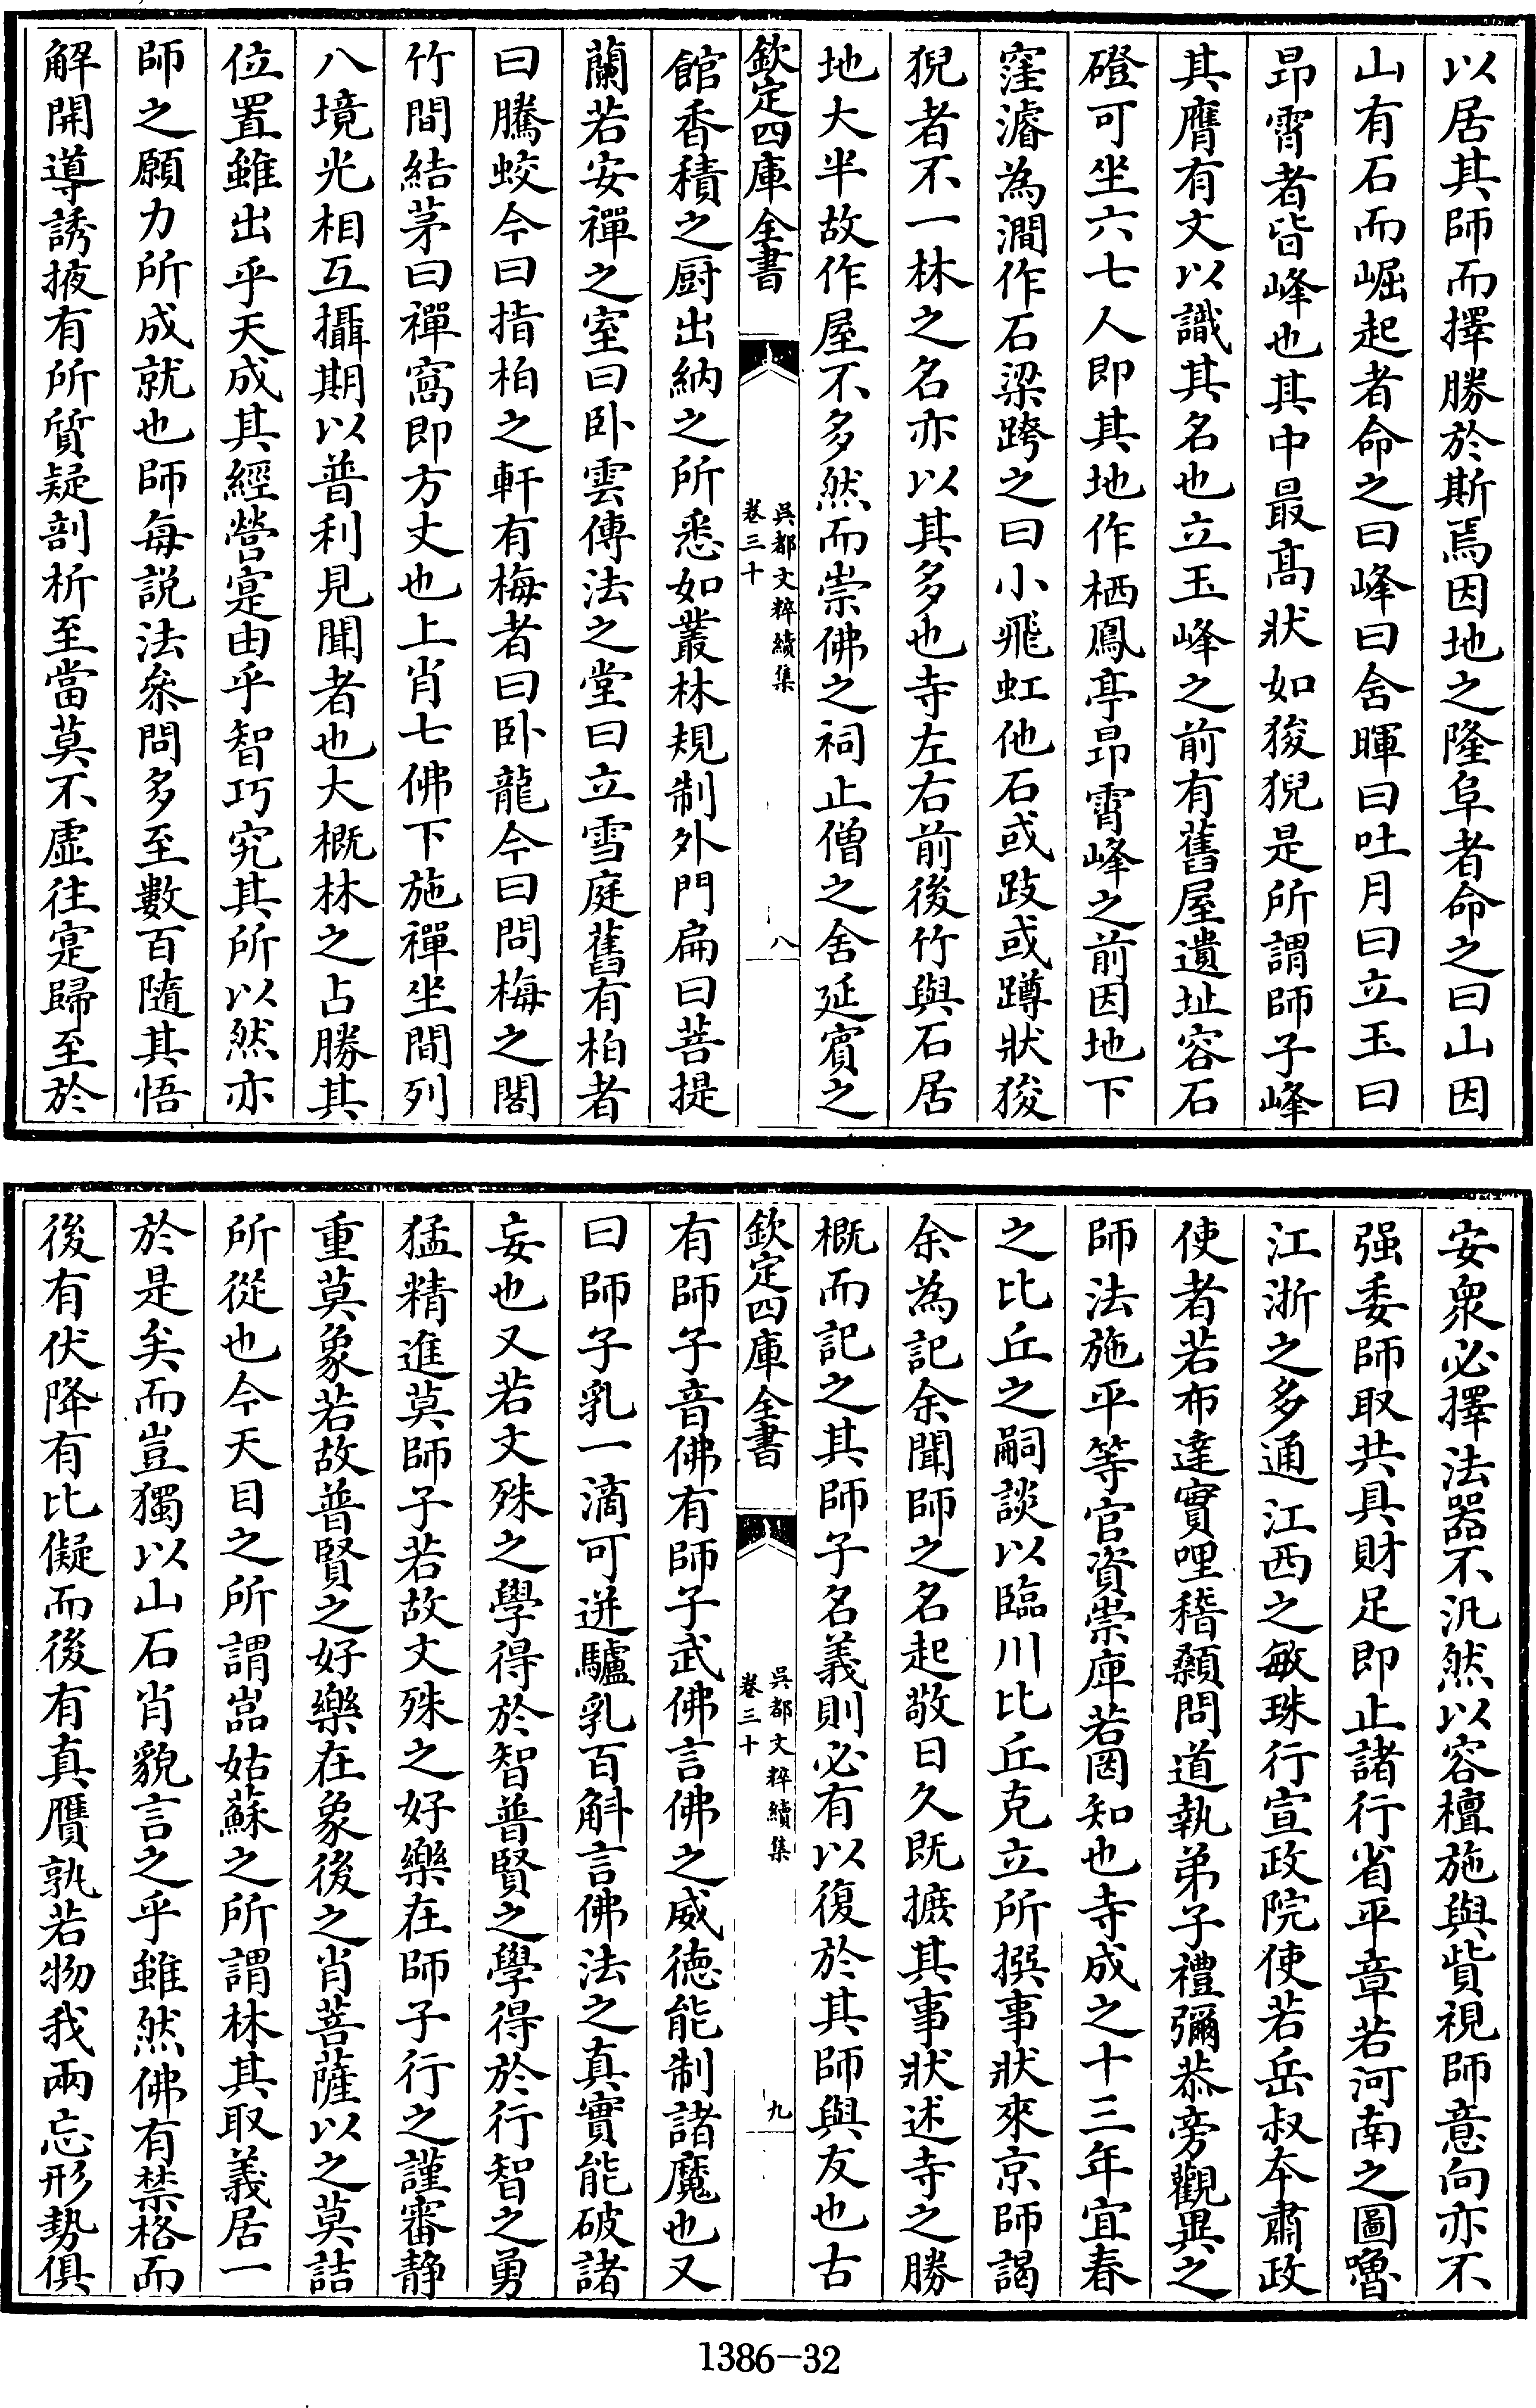 以居其師而擇勝於斯焉因地之隆阜者命之曰山因
山有石而崛起者命之曰峰曰含暉曰吐月曰立玉曰
昂霄者皆峰也其中最髙狀如狻猊是所謂師子峰
其膺有文以識其名也立玉峰之前有舊屋遺址容石
磴可坐六七人即其地作栖鳳亭昂霄峰之前因地下
窪濬為澗作石梁跨之曰小飛虹他石或跂或蹲狀狻
猊者不一林之名亦以其多也寺左右前後竹與石居
地大半故作屋不多然而崇佛之祠止僧之舍延賓之
欽定四庫全書
吳都文粹續集
卷三十
八
館香積之厨出納之所悉如叢林規制外門扁曰菩提
蘭若安禪之室曰卧雲傳法之堂曰立雪庭舊有柏者
曰騰蛟今曰指柏之軒有梅者曰卧龍今曰問梅之閣
竹間結茅曰禪窩即方丈也上肖七佛下施禪坐間列
八境光相互攝期以普利見聞者也大概林之占勝其
位置雖出乎天成其經營寔由乎智巧究其所以然亦
師之願力所成就也師每説法叅問多至數百隨其悟
解開導誘掖有所質疑剖析至當莫不虛往寔歸至於
安衆必擇法器不汎然以容檀施與貲視師意向亦不
强委師取共具財足即止諸行省平章若河南之圖嚕
江浙之多通江西之敏珠行宣政院使若岳叔夲肅政
使者若布達實哩稽顙問道執弟子禮彌恭旁觀異之
師法施平等官資崇庳若罔知也寺成之十三年宜春
之比丘之嗣談以臨川比丘克立所撰事狀來京師謁
余為記余聞師之名起敬日久既摭其事狀述寺之勝
概而記之其師子名義則必有以復於其師與友也古
欽定四庫全書
吳都文粹續集
卷三十
九
有師子音佛有師子武佛言佛之威徳能制諸魔也又
曰師子乳一滴可迸驢乳百斛言佛法之真實能破諸
妄也又若文殊之學得於智普賢之學得於行智之勇
猛精進莫師子若故文殊之好樂在師子行之謹審静
重莫象若故普賢之好樂在象後之肖菩薩以之莫詰
所從也今天目之所謂嵓姑蘇之所謂林其取義居一
於是矣而豈獨以山石肖貌言之乎雖然佛有禁格而
後有伏降有比儗而後有真贋孰若物我兩忘形勢俱
1386-32